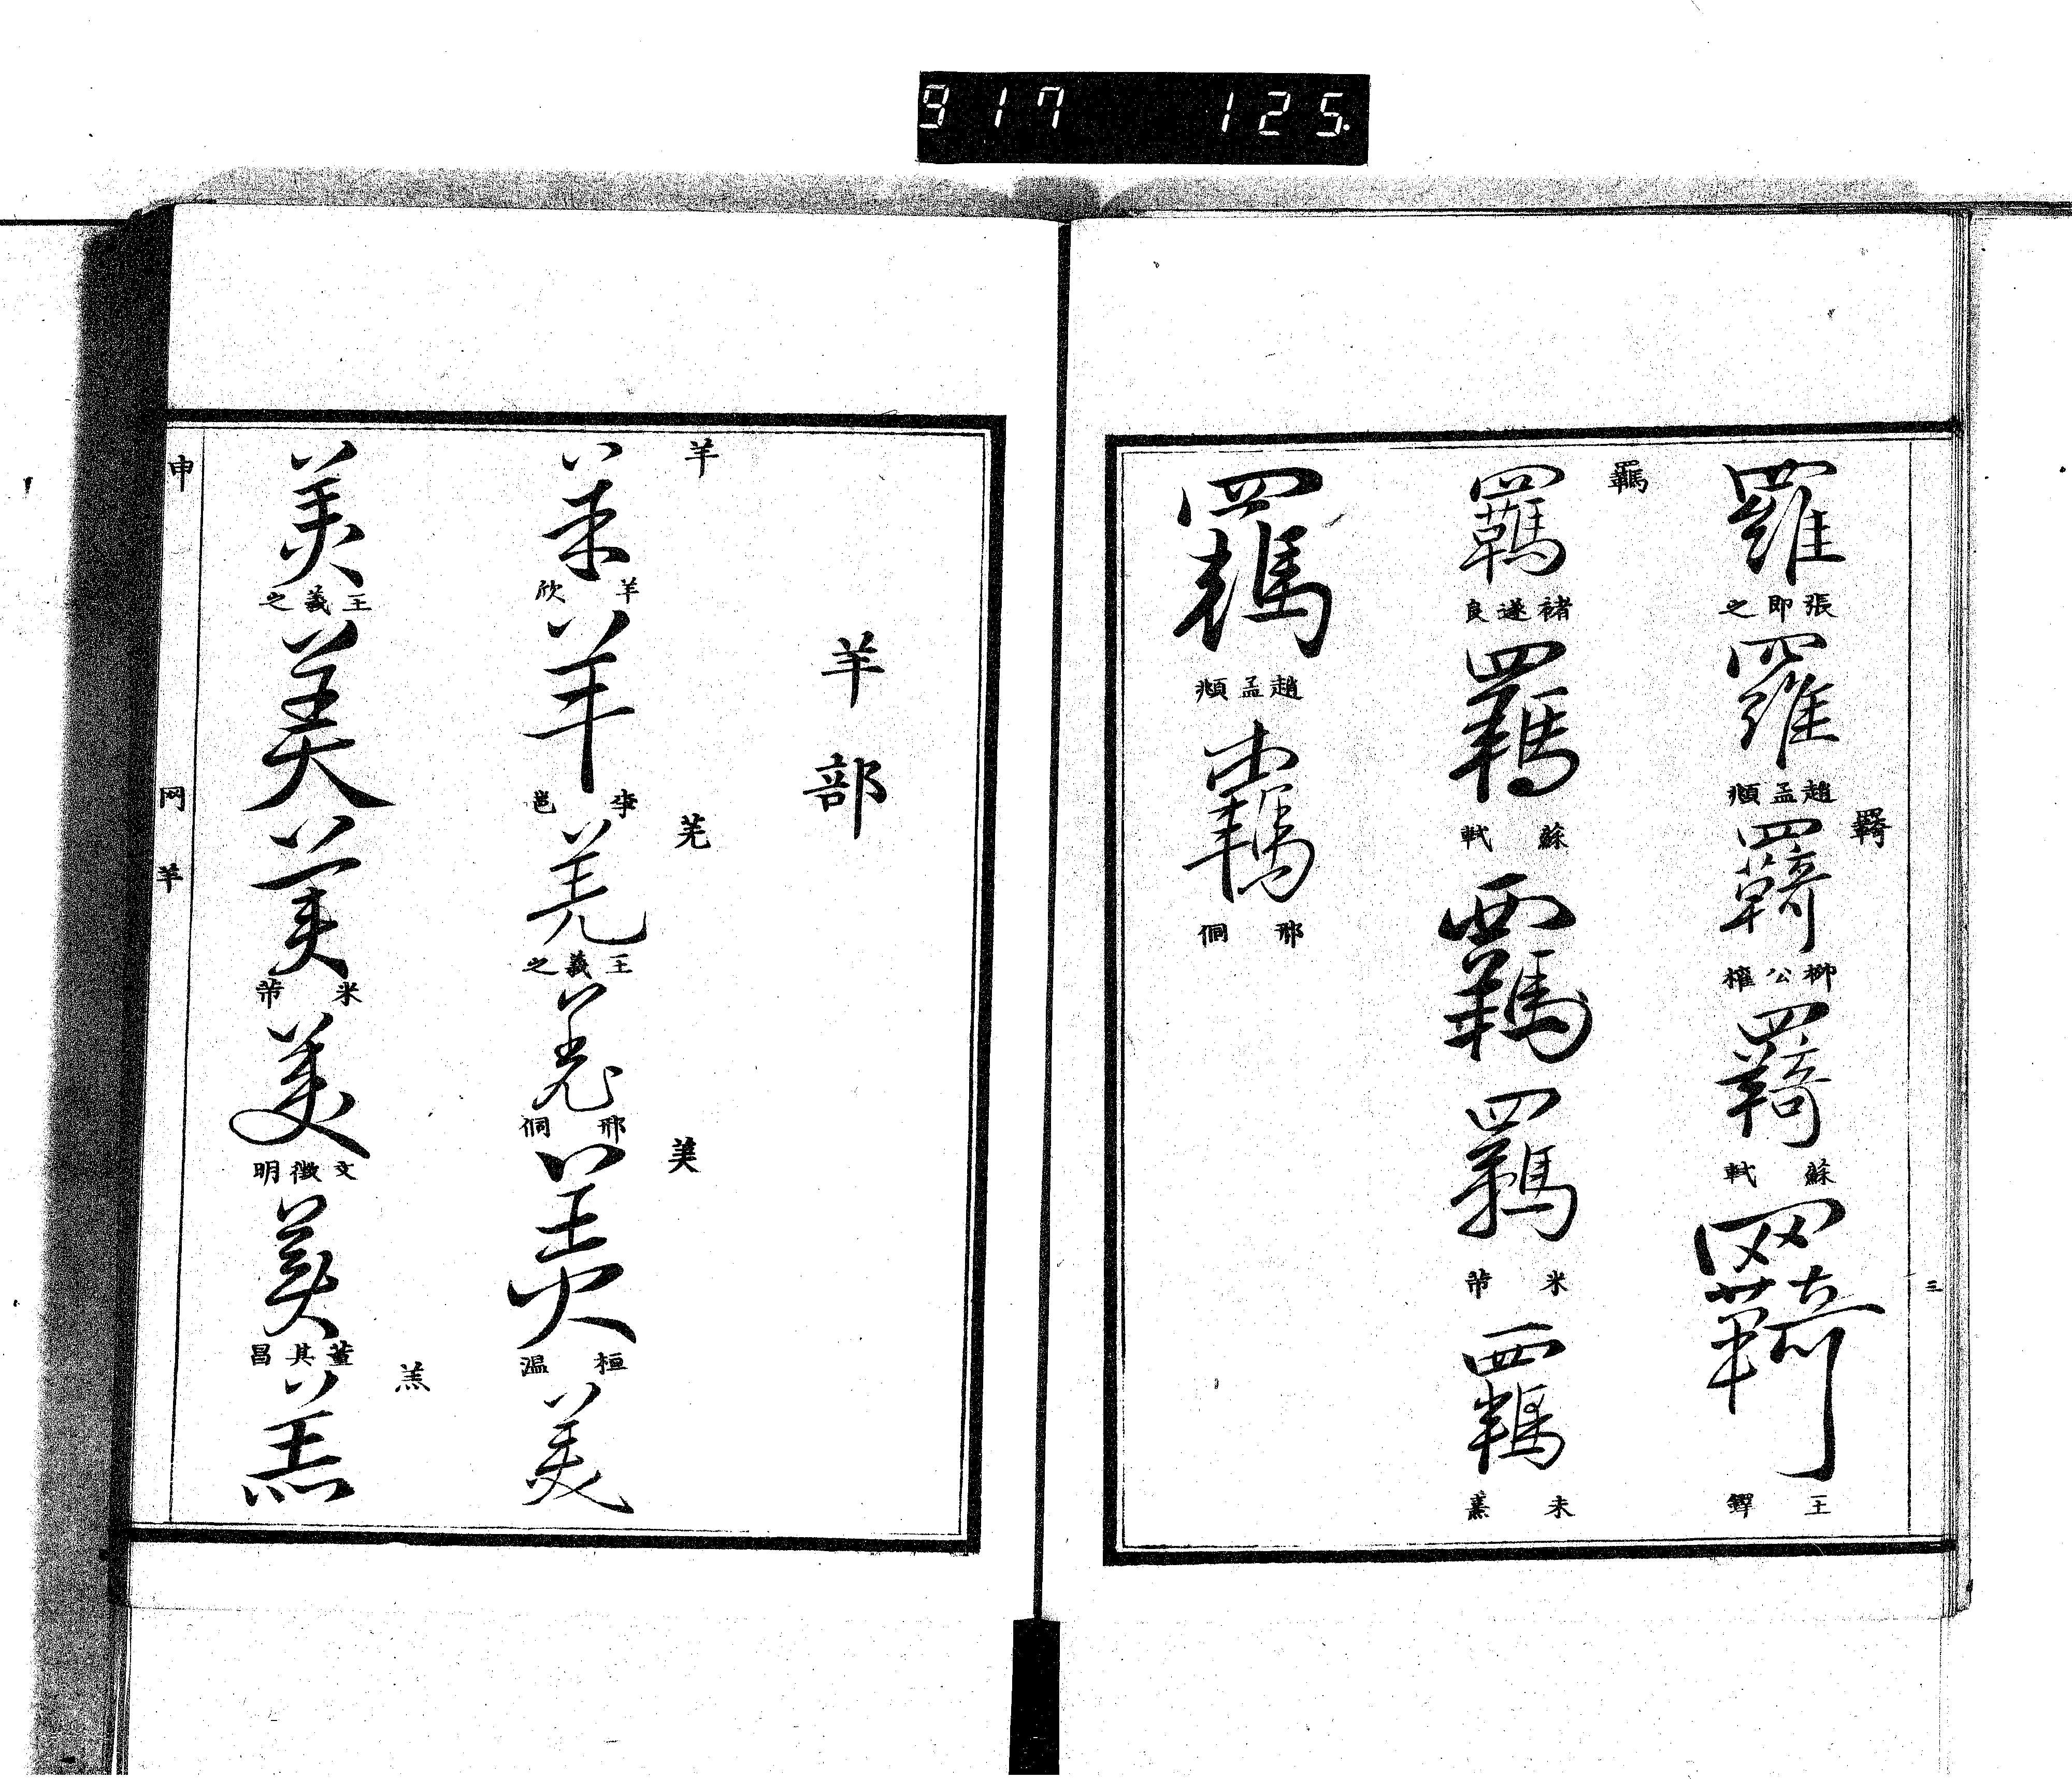 917 125.
三
羅
張即之
羅
趙孟頫
羇
羇
柳公權
羇
蘇軾
羇
王鐸
羈
羈
褚遂良
羈
蘇軾
羈
羈
米芾
羈
朱熹
羈
趙孟頫
羈
邢侗
羊部
羊
羊
羊欣
羊
李邕
羌
羌
王羲之
羌
邢侗
美
美
桓溫
美
美
王羲之
美
美
米芾
美
文徵明
美
董其昌
羔
羔
申
网
羊